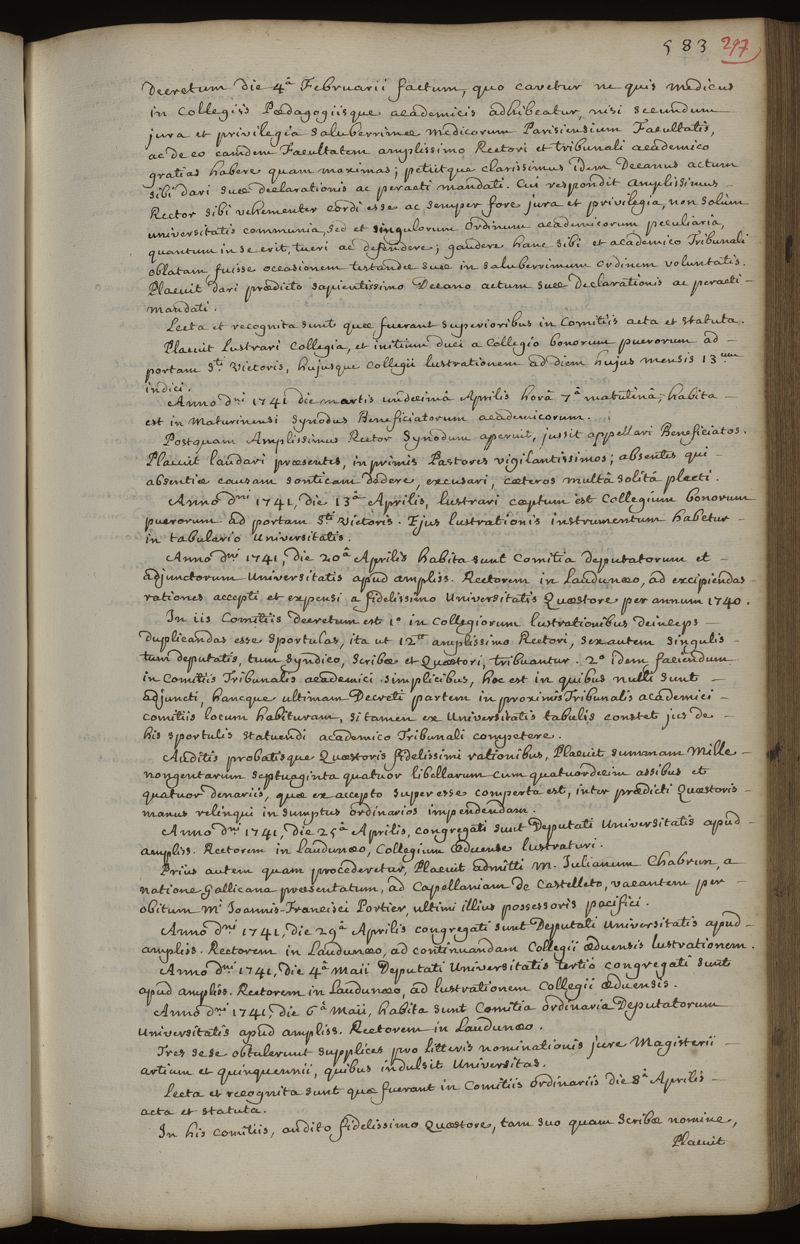 583 297
Decretum die 4ª Februarii factum, quo cavetur ne quis medicus
in Collegiis Pædagogiisque academicis adhibeatur, nisi secundum
jura et privilegia saluberrimæ Medicorum Parisiensium Facultatis,
ac de eo eamdem Facultatem amplissimo Rectori et tribunali academico
gratias habere quam maximas; petiitque clarissimus idem Decanus actum
sibi dari suæ declarationis ac peracti mandati. Cui respondit Amplissimus
Rector sibi vehementer cordi esse ac semper fore jura et privilegia, non solùm
universitatis communia, sed et singulorum ordinum academicorum peculiaria,
quantum in se erit, tueri ac defendere; gaudere hanc sibi et academico Tribunali
oblatam fuisse occasionem testandæ suæ in saluberrimum ordinem voluntatis.
Placuit dari prædicto sapientissimo Decano actum suæ declarationis ac peracti
mandati.
Lecta et recognita sunt quæ fuerant superioribus in Comitiis acta et statuta.
Placuit lustrari Collegia, et initium duci a Collegio bonorum puerorum ad
portam Sti Victoris, hujusque Collegii lustrationem ad diem hujus mensis 13um
indici.
Anno dni 1741 die martis undecimâ Aprilis horâ 7ª matutinâ, habita
est in Maturinensi Synodus Beneficiatorum academicorum.
Postquam Amplissimus Rector Synodum aperuit, jussit appellari Beneficiatos.
Placuit laudari præsentes, inprimis Pastores vigilantissimos; absentes qui
absentiæ causam sonticam dedere, excusari, cæteros multâ solitâ plecti.
Anno dni 1741, die 13ª Aprilis, lustrari cœptum est Collegium bonorum
puerorum ad portam Sti Victoris. Ejus lustrationis instrumentum habetur
in tabulario universitatis.
Anno dni 1741, die 20ª Aprilis habita sunt Comitia Deputatorum et
adjunctorum Universitatis apud ampliss. Rectorem in Laudunæo, ad excipiendas
rationes accepti et expensi a fidelissimo Universitatis Quæstore per annum 1740.
In iis Comitiis decretum est 1º in Collegiorum lustrationibus deinceps
duplicandas esse sportulas, ita ut 12 amplissimo Rectori, sex autem singulis
tum deputatis, tum Syndico, Scribæ et Quæstori, tribuantur. 2º idem faciendum
in Comitiis Tribunalis academici simplicibus, hoc est in quibus nulli sunt
adjuncti, hancque ultimam Decreti partem in proximis Tribunalis academici
comitiis locum habituram, si tamen ex Universitatis tabulis constet jus de
his sportulis statuendi academico Tribunali competere.
Auditis probatisque Quæstoris fidelissimi rationibus, Placuit summam mille
nongentarum septuaginta quatuor libellarum cum quatuordecim assibus et
quatuor denariis, quæ ex accepto superesse comperta est, inter prædicti Quæstoris
manus relinqui in sumptus ordinarios impendendam.
Anno dni 1741, die 25ª Aprilis, congregati sunt Deputati Universitatis apud
ampliss. Rectorem in Laudunæo, Collegium æduense lustraturi.
Prius autem quam procederetur, Placuit admitti M. Julianum Chabrun, a
natione Gallicana præsentatum, ad Capellaniam De Castelleto, vacantem per
obitum Mi Joannis-Francisci Portier, ultimi illius possessoris pacifici.
Anno dni 1741, die 29ª Aprilis congregati sunt Deputati Universitatis apud
ampliss. Rectorem in Laudunæo, ad continuandam Collegii æduensis lustrationem.
Anno dni 1741, die 4ª Maii Deputati Universitatis tertiò congregati sunt
apud ampliss. Rectorem in Laudunæo, ad lustrationem Collegii æduensis.
Anno dni 1741, die 6ª Maii, habita sunt Comitia ordinaria Deputatorum
Universitatis apud ampliss. Rectorem in Laudunæo.
Tres sese obtulerunt supplices pro litteris nominationis jure Magisterii
artium et quinquennii, quibus indulsit Universitas.
Lecta et recognita sunt quæ fuerant in Comitiis ordinariis die 8ª Aprilis
acta et statuta.
In his comitiis, audito fidelissimo Quæstore, tam suo quam Scribæ nomine,
Placuit